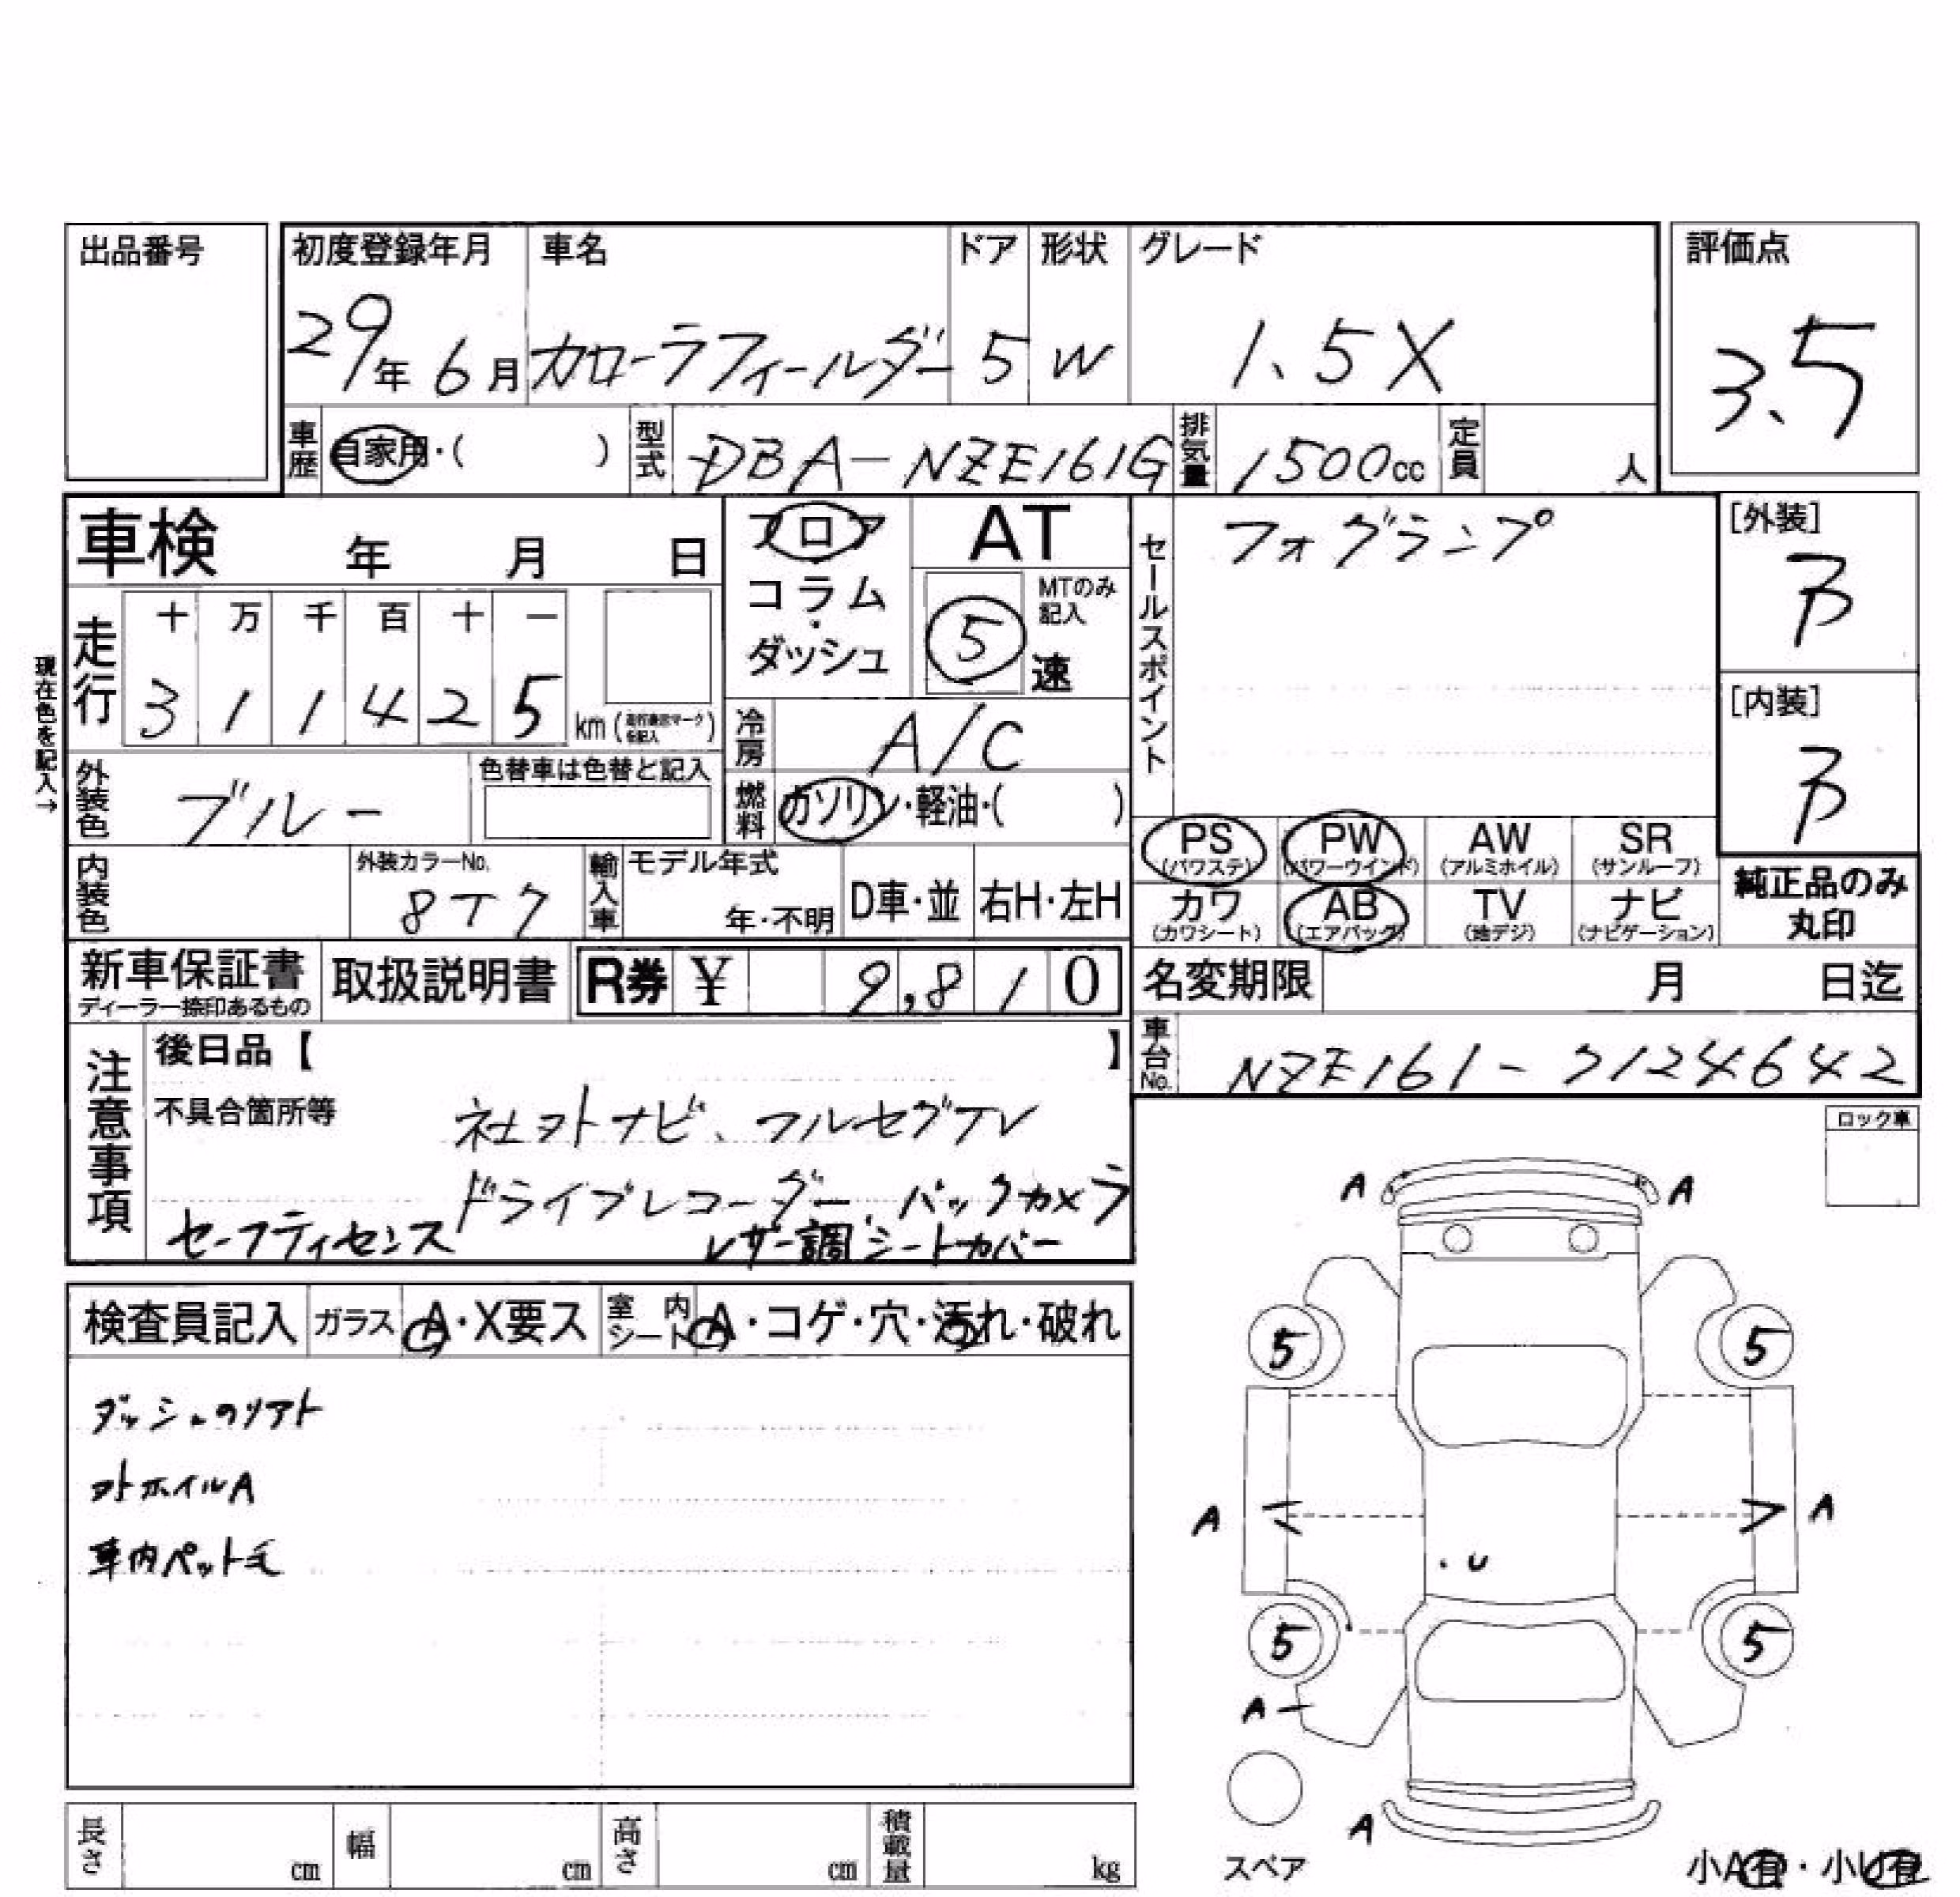 出品番号
初度登録年月 車名 ドア 形状 グレード 評価点
29年6月 カローラフィールダー 5 W 1.5X 3.5
車歴 自家用・( ) 型式 DBA-NZE161G 排気量 1500cc 定員 人
車検 年 月 日
フロア
コラム・
ダッシュ
AT
MTのみ記入
5 速
セールスポイント フォグランプ
[外装] B
[内装] B
現在色を記入→
走行 十 万 千 百 十 一
3 1 1 4 2 5 km (走行表示マークを記入)
冷房 A/C
外装色 ブルー 色替車は色替と記入
燃料 ガソリン・軽油・( )
PS (パワステ) PW (パワーウインド) AW (アルミホイル) SR (サンルーフ)
カワ (カワシート) AB (エアバック) TV (地デジ) ナビ (ナビゲーション)
純正品のみ丸印
内装色 外装カラーNo. 8T7 輸入車 モデル年式 年・不明 D車・並 右H・左H
新車保証書 ディーラー捺印あるもの 取扱説明書 R券 ¥ 9,810
名変期限 月 日迄
車台No. NZE161-7124642
注意事項
後日品【 】
不具合箇所等 社外ナビ、フルセグTV
ドライブレコーダー、バックカメラ
セーフティセンス レザー調シートカバー
ロック車
検査員記入 ガラス A・X要ス 室内シート A・コゲ・穴・汚れ・破れ
ダッシュのリアト
外ホイルA
車内ペット毛
A A
5 5
A A
・U
5 5
A
A
スペア
小A有・小U有
長さ cm 幅 cm 高さ cm 積載量 kg